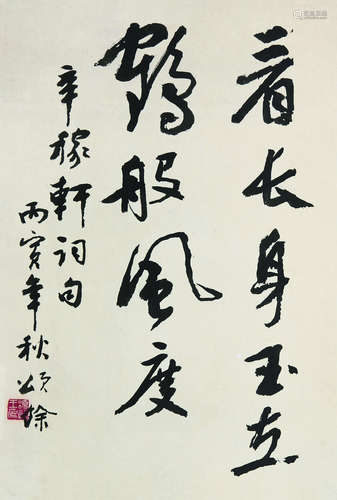 看长身玉立
鹤般风度
辛稼轩词句
丙寅年秋颂馀